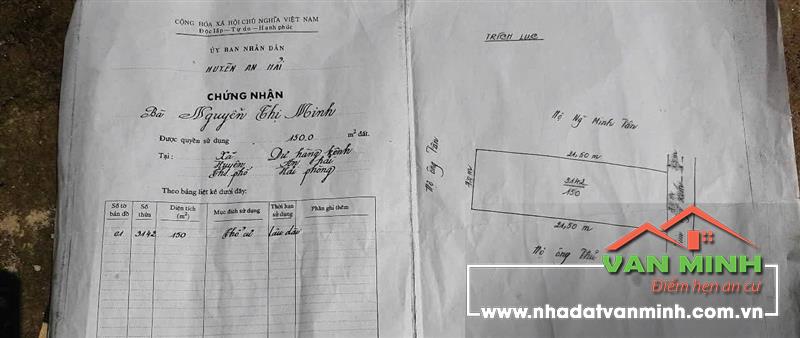 CỘNG HÒA XÃ HỘI CHỦ NGHĨA VIỆT NAM
Độc lập - Tự do - Hạnh phúc
ỦY BAN NHÂN DÂN
HUYỆN AN HẢI
CHỨNG NHẬN
Bà Nguyễn Thị Minh
Được quyền sử dụng 150.0 m² đất.
Tại: Xã Dư hàng kênh
Huyện An hải
Th/phố Hải phòng
Theo bảng liệt kê dưới đây:
Số tờ bản đồ
Số thửa
Diện tích (m²)
Mục đích sử dụng
Thời hạn sử dụng
Phần ghi thêm
01 3142 150 Thổ cư Lâu dài
TRÍCH LỤC
Hộ ông Tân
Hộ Ng Minh Tân
21,50 m
3142
150
21,50 m
Hộ ông Thử
VAN MINH
Điểm hẹn an cư
www.nhadatvanminh.com.vn